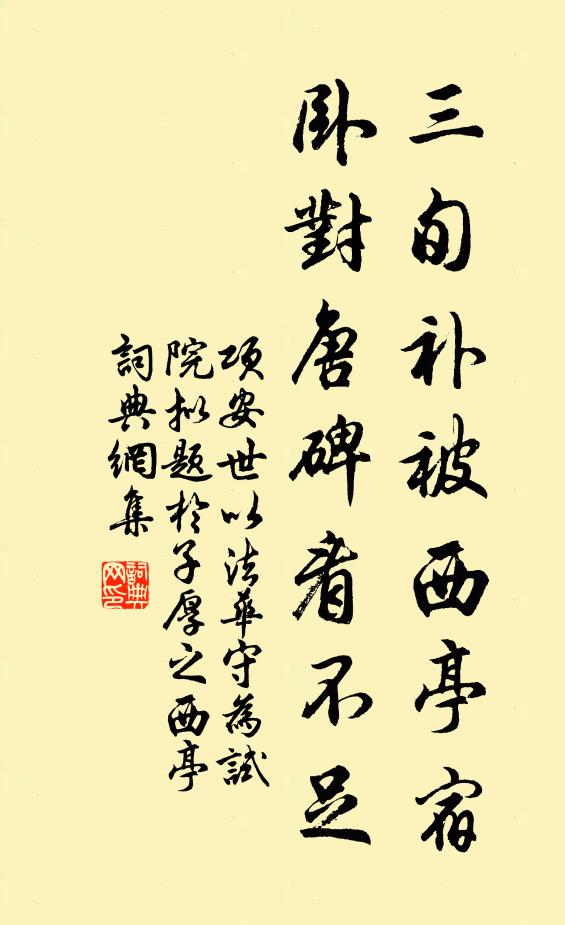 三旬补被西亭宿
卧對唐碑看不足
項安世以法華守為試
院拟題於子厚之西亭
詞典網集
詞典网印